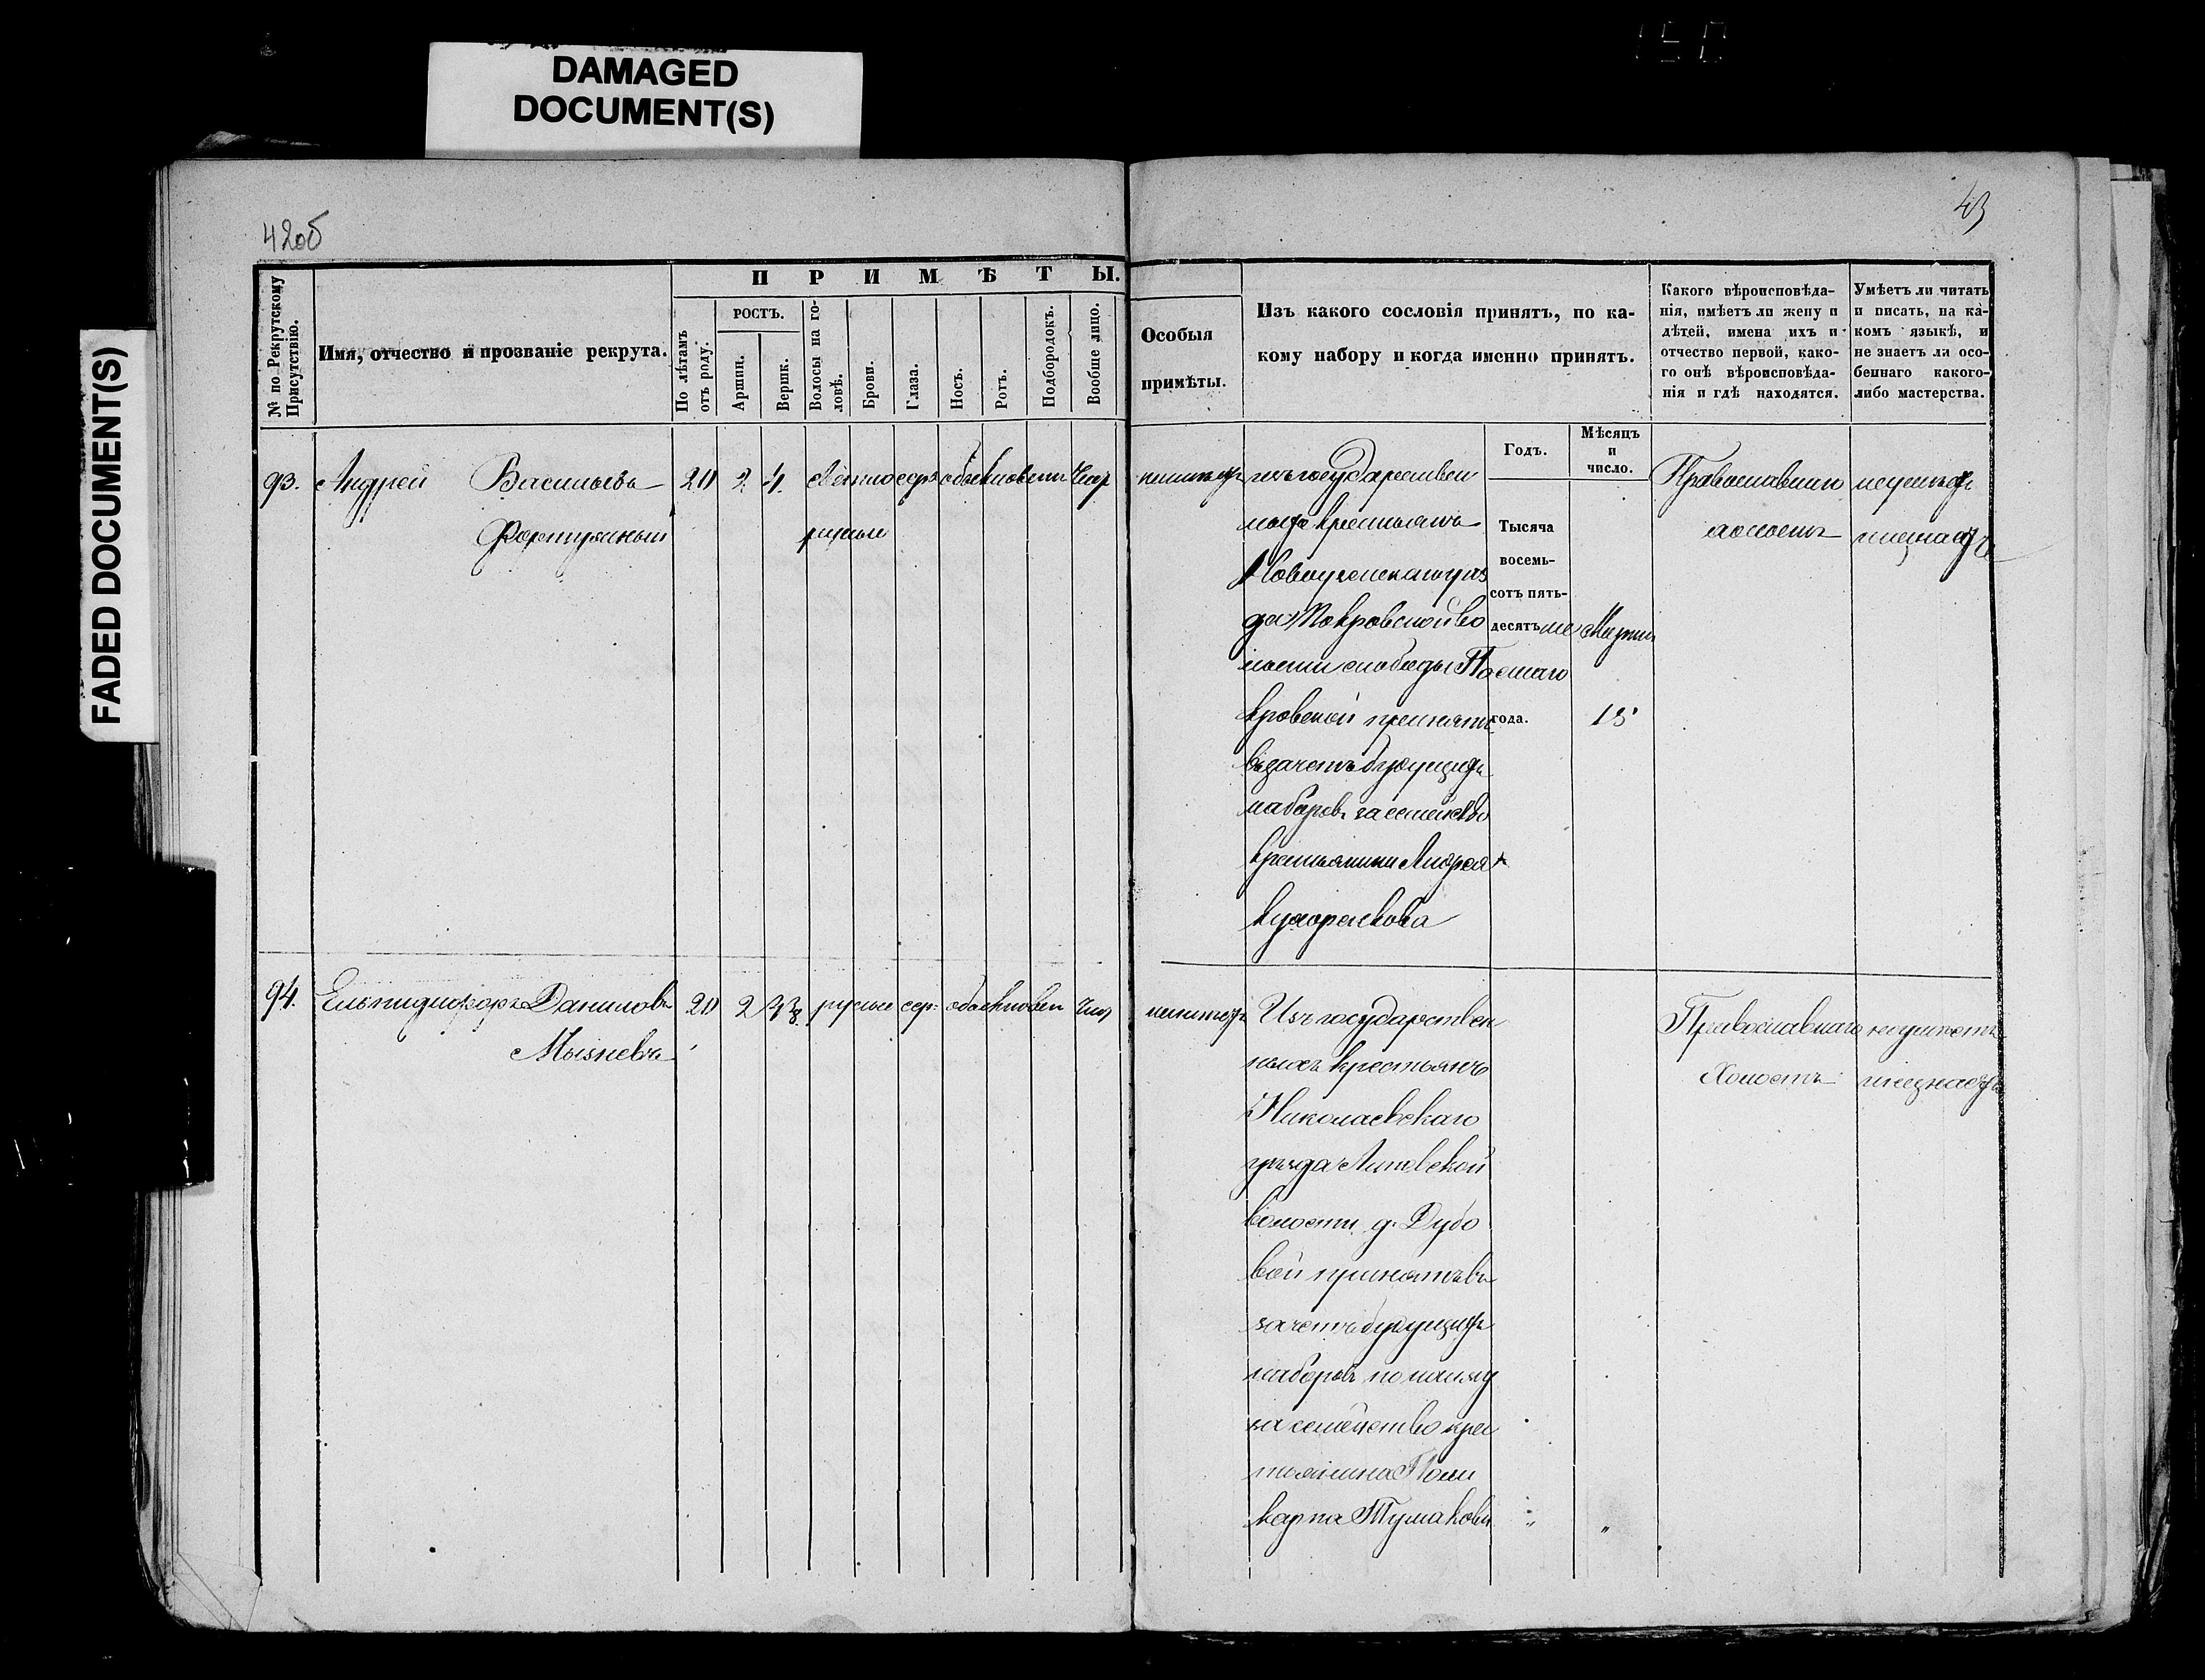 DAMAGED
DOCUMENT(S)
FADED DOCUMENT(S)
42об
43
П Р И М Ѣ Т Ы.
№ по Рекрутскому Присутствію.
Имя, отчество и прозваніе рекрута.
По лѣтамъ отъ роду.
РОСТЪ.
Аршин.
Вершк.
Волосы на го-
ловѣ.
Брови.
Глаза.
Носъ.
Ротъ.
Подбородокъ.
Вообще лицо.
Особыя
примѣты.
Изъ какого сословія принятъ, по ка-
кому набору и когда именно принятъ.
Какого вѣроисповѣда-
нія, имѣетъ ли жену и
дѣтей, имена ихъ и
отчество первой, како-
го онѣ вѣроисповѣда-
нія и гдѣ находятся.
Умѣетъ ли читать
и писать, на ка-
комъ языкѣ, и
не знаетъ ли осо-
беннаго какого-
либо мастерства.
Годъ.
Мѣсяцъ
и
число.
93. Андрей Васильевъ 20 2 4. свѣтло сѣр обыкновен Чист
русые
нимѣетъ
изъ государствен
ныхъ крестьянъ
Новоузенскаго уѣз
да Покровской во
лости слободы По
кровской принятъ
въ зачетъ будущихъ
наборовъ за семейство
крестьянина Андрея
Тысяча
восемь-
сотъ пять-
десятъ ше
стаго
года.
Марта
15
Православнаго
холостъ
неумѣетъ
незнаетъ
94. Ельпидифоръ Даниловъ 20 2 3⅜ русые сѣр: обыкновен Чис
Мызневъ
неимѣетъ
Изъ государствен
ныхъ крестьянъ
Николаевскаго
уѣзда Липовской
волости д. Дубо
вой принятъ въ
зачетъ будущихъ
наборовъ по найму
за семейство крес
тьянина Поли
карпа Тумакова
Православнаго
Холостъ
неумѣетъ
незнаетъ